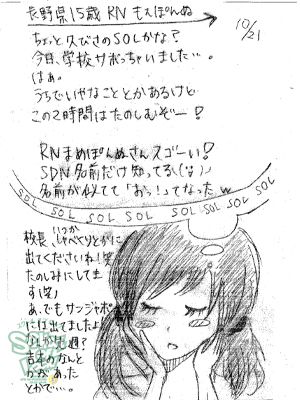 長野県15歳 RN もえぽんぬ
10/21
ちょっと久びさのSOLかな?
今日、学校サボっちゃいました…。
はぁ。
うちでいやなこととかあるけど
この2時間はたのしむぞー!
RN まめぽんぬさんスゴーい!
SDN 名前だけ知ってる(笑)
名前が似てて「おっ!」ってなったw
SOL SOL SOL SOL SOL SOL SOL SOL
校長、いつか
しゃべくりとかに
出てくださいね!笑
たのしみにしてま
す(笑)
あ、でもサンジャポ
には出てましたよ
週?
吉本のなんと
かがあった
とかで…。